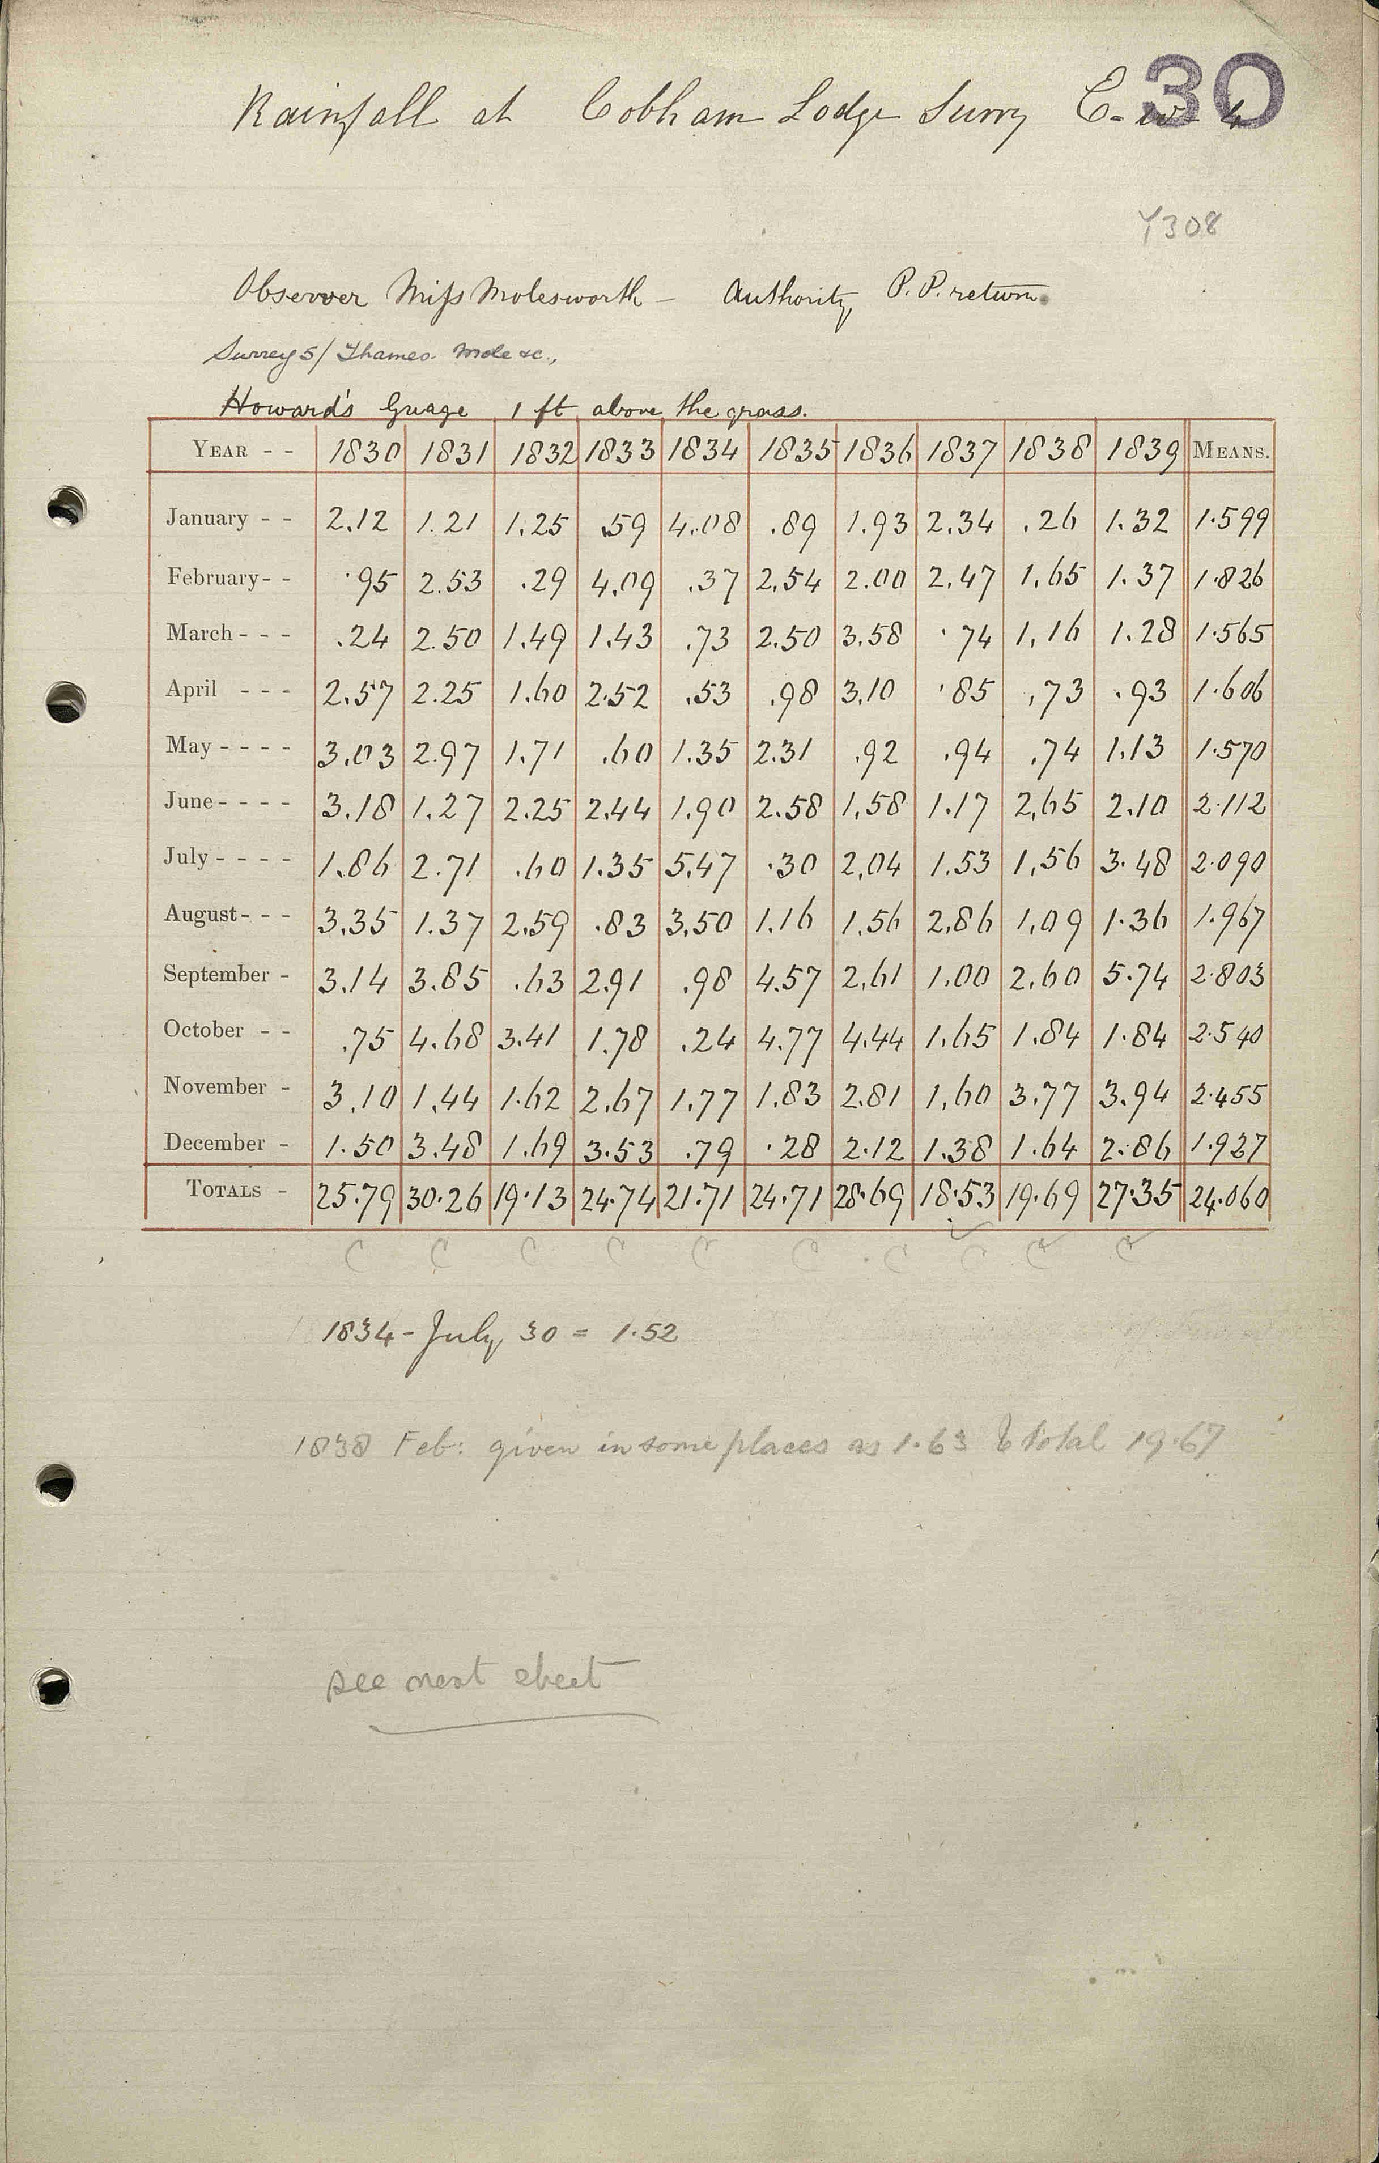 30
Rainfall at Cobham Lodge Surry
Y308
Observer Miss Molesworth - Authority P.P. return.
Surrey 5/ Thames. Mole &c.,
Howard's Guage 1 ft above the grass.
YEAR - - 1830 1831 1832 1833 1834 1835 1836 1837 1838 1839 MEANS.
January - - 2.12 1.21 1.25 .59 4.08 .89 1.93 2.34 .26 1.32 1.599
February - - .95 2.53 .29 4.09 .37 2.54 2.00 2.47 1.65 1.37 1.826
March - - - .24 2.50 1.49 1.43 .73 2.50 3.58 .74 1.16 1.28 1.565
April - - - 2.57 2.25 1.60 2.52 .53 .98 3.10 .85 .73 .93 1.606
May - - - - 3.03 2.97 1.71 .60 1.35 2.31 .92 .94 .74 1.13 1.570
June - - - - 3.18 1.27 2.25 2.44 1.90 2.58 1.58 1.17 2.65 2.10 2.112
July - - - - 1.86 2.71 .60 1.35 5.47 .30 2.04 1.53 1.56 3.48 2.090
August - - - 3.35 1.37 2.59 .83 3.50 1.16 1.56 2.86 1.09 1.36 1.967
September - 3.14 3.85 .63 2.91 .98 4.57 2.61 1.00 2.60 5.74 2.803
October - - .75 4.68 3.41 1.78 .24 4.77 4.44 1.65 1.84 1.84 2.540
November - 3.10 1.44 1.62 2.67 1.77 1.83 2.81 1.60 3.77 3.94 2.455
December - 1.50 3.48 1.69 3.53 .79 .28 2.12 1.38 1.64 2.86 1.927
TOTALS - 25.79 30.26 19.13 24.74 21.71 24.71 28.69 18.53 19.69 27.35 24.060
C C C C C C C C C C
1834 - July 30 = 1.52
1838 Feb: given in some places as 1.63 & total 19.67
see next sheet